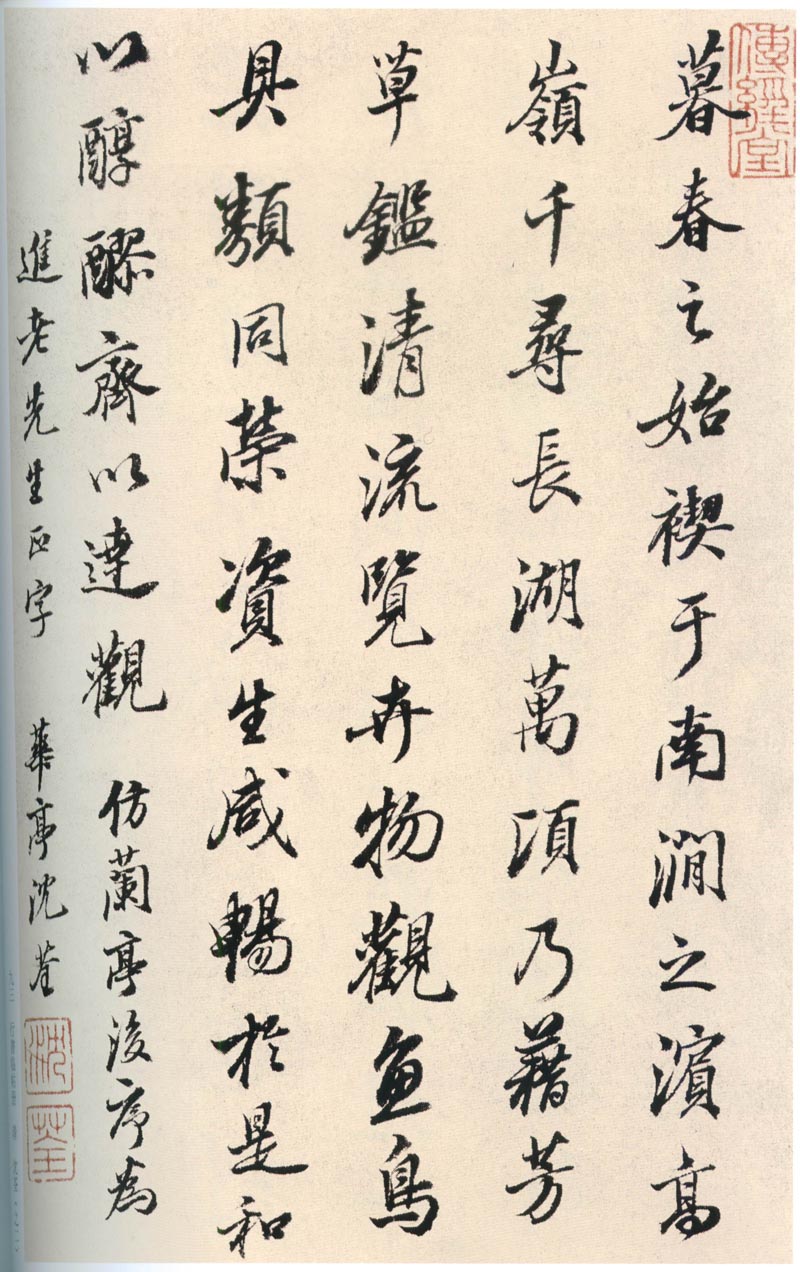 傳經堂
暮春之始禊于南澗之濱高
嶺千尋長湖萬頃乃藉芳
草鑑清流覽卉物觀魚鳥
具類同榮資生咸暢於是和
以醇醪齊以達觀 仿蘭亭後序為
進老先生正字 華亭沈荃
沈荃